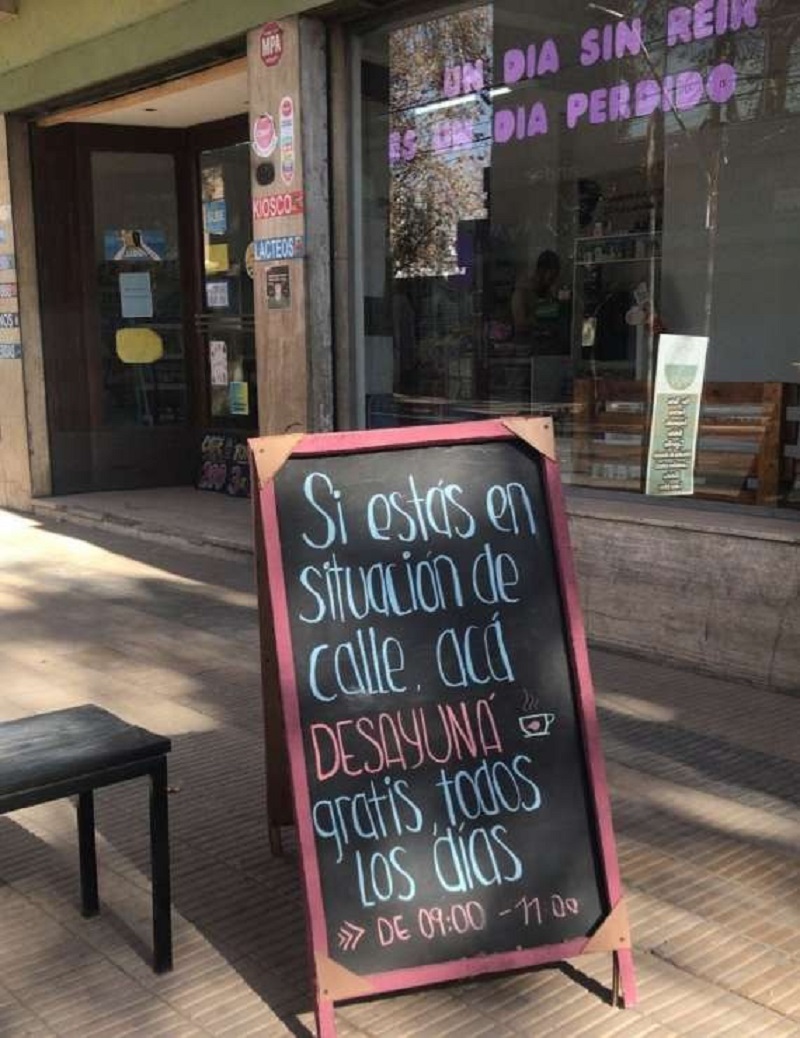 UN DIA SIN REIR
ES UN DIA PERDIDO
MPA
KIOSCO
LACTEOS
Si estás en
situación de
calle, acá
DESAYUNÁ
gratis todos
los días
DE 09:00 - 11:00